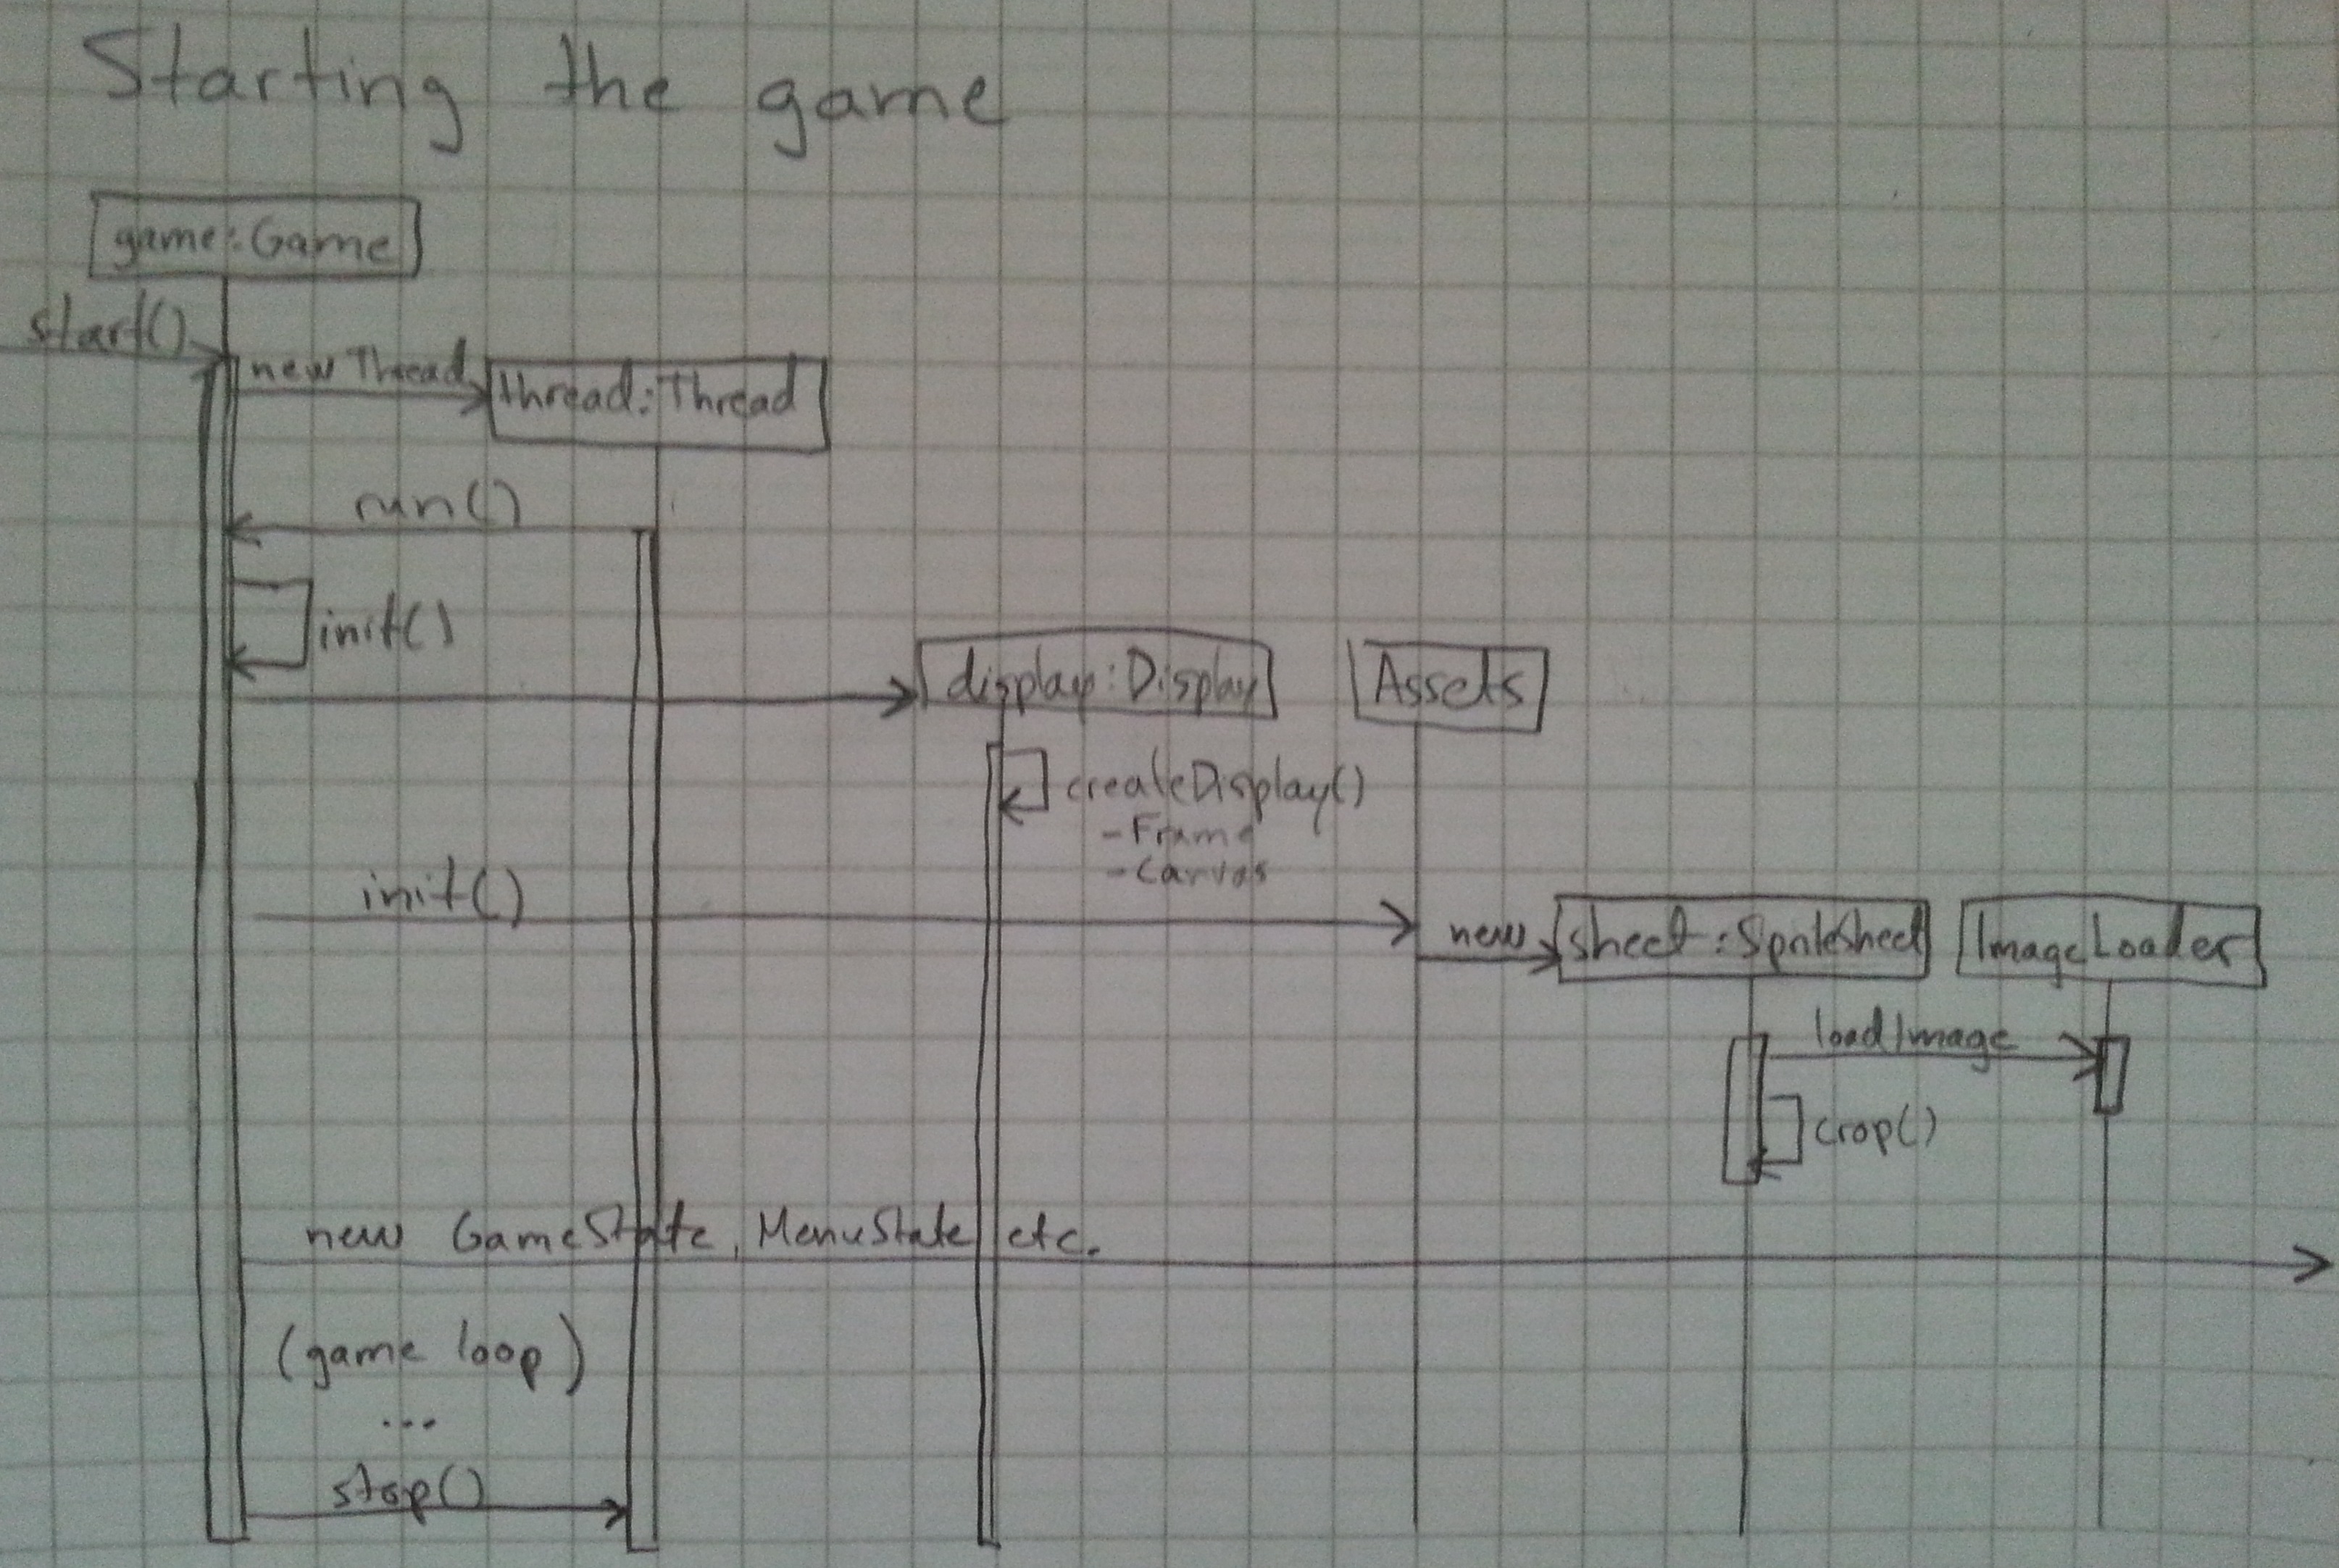 Starting the game
game:Game
start()
new Thread
thread:Thread
run()
init()
display:Display
Assets
createDisplay()
-Frame
-Canvas
init()
new
sheet:SpriteSheet
ImageLoader
loadImage
crop()
new GameState, MenuState etc.
(game loop)
...
stop()